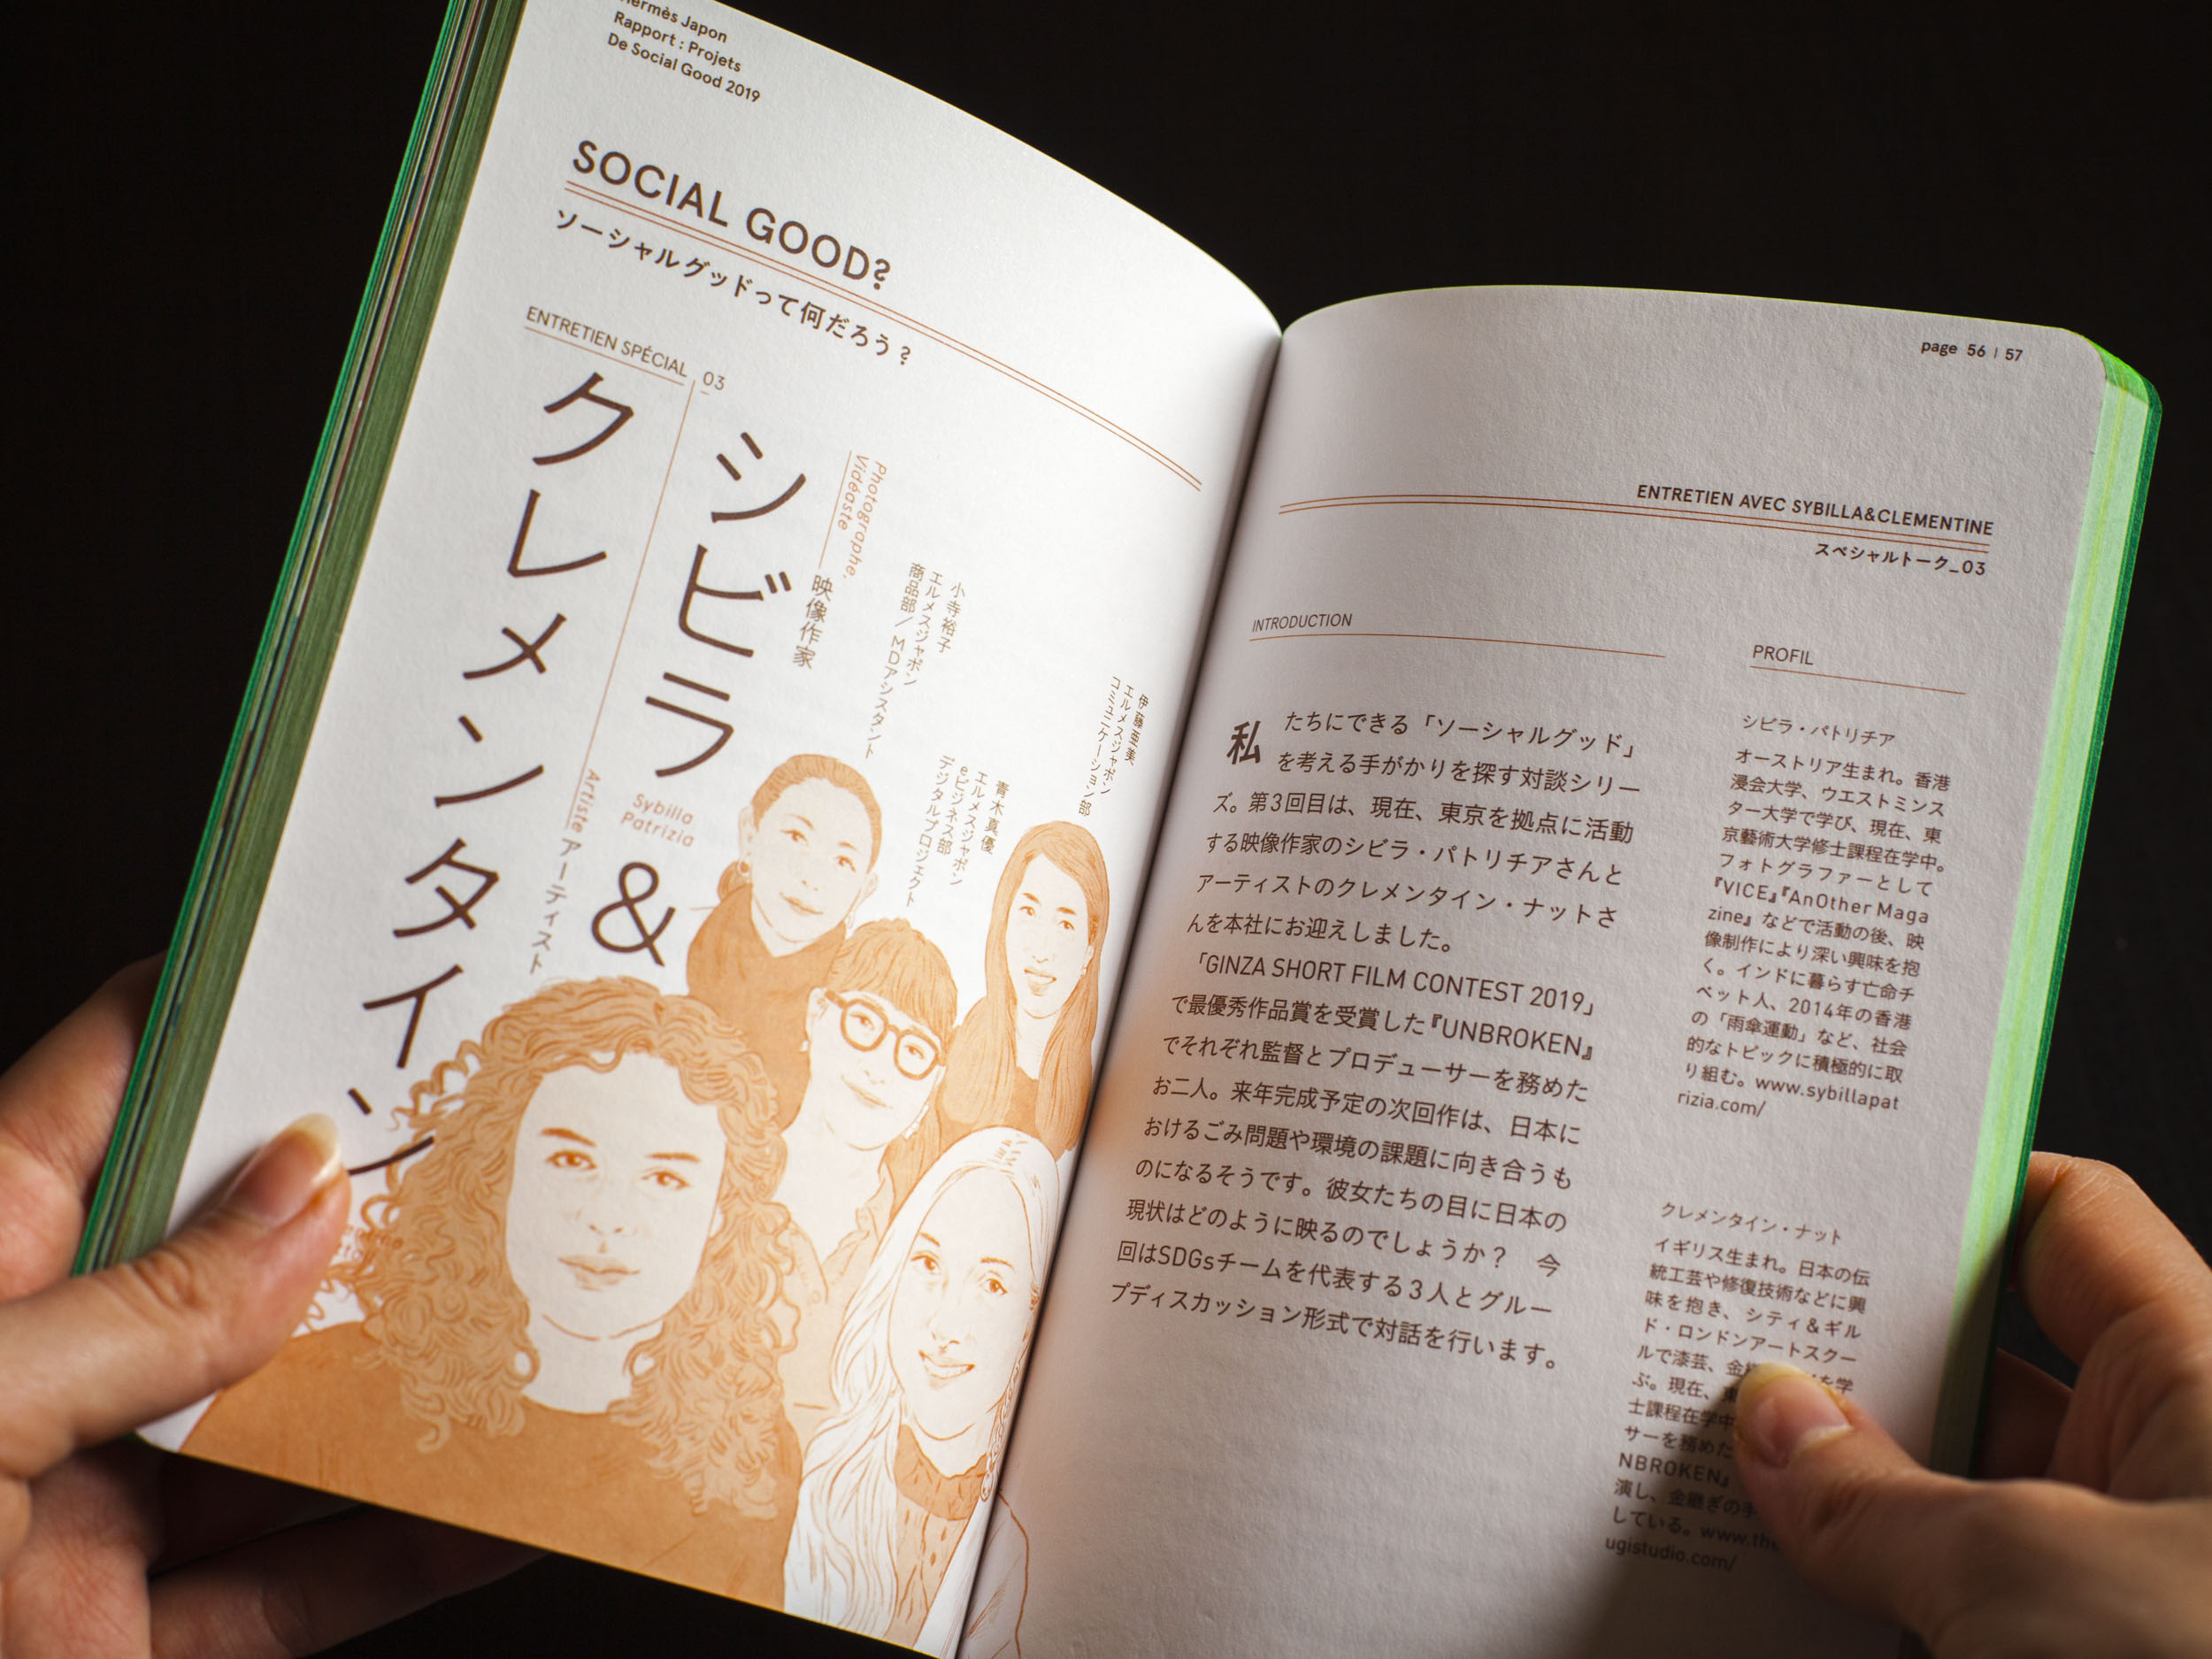 Hermès Japon
Rapport : Projets
De Social Good 2019
SOCIAL GOOD?
ソーシャルグッドって何だろう？
ENTRETIEN SPÉCIAL _03
Photographe.
Vidéaste
映像作家
シビラ
Sybilla
Patrizia
&
クレメンタイン
Artiste アーティスト
伊藤亜美
エルメスジャポン
コミュニケーション部
小寺裕子
エルメスジャポン
商品部／MDアシスタント
青木真優
エルメスジャポン
eビジネス部
デジタルプロジェクト
page 56 | 57
ENTRETIEN AVEC SYBILLA&CLEMENTINE
スペシャルトーク_03
INTRODUCTION
私たちにできる「ソーシャルグッド」
を考える手がかりを探す対談シリー
ズ。第3回目は、現在、東京を拠点に活動
する映像作家のシビラ・パトリチアさんと
アーティストのクレメンタイン・ナットさ
んを本社にお迎えしました。
「GINZA SHORT FILM CONTEST 2019」
で最優秀作品賞を受賞した『UNBROKEN』
でそれぞれ監督とプロデューサーを務めた
お二人。来年完成予定の次回作は、日本に
おけるごみ問題や環境の課題に向き合うも
のになるそうです。彼女たちの目に日本の
現状はどのように映るのでしょうか？　今
回はSDGsチームを代表する3人とグルー
プディスカッション形式で対話を行います。
PROFIL
シビラ・パトリチア
オーストリア生まれ。香港
浸会大学、ウエストミンス
ター大学で学び、現在、東
京藝術大学修士課程在学中。
フォトグラファーとして
『VICE』『AnOther Maga
zine』などで活動の後、映
像制作により深い興味を抱
く。インドに暮らす亡命チ
ベット人、2014年の香港
の「雨傘運動」など、社会
的なトピックに積極的に取
り組む。www.sybillapat
rizia.com/
クレメンタイン・ナット
イギリス生まれ。日本の伝
統工芸や修復技術などに興
味を抱き、シティ＆ギル
ド・ロンドンアートスクー
ルで漆芸、金 を学
ぶ。現在、
士課程在学中
サーを務めた
NBROKEN』
演し、金継ぎの手
している。www.the
ugistudio.com/